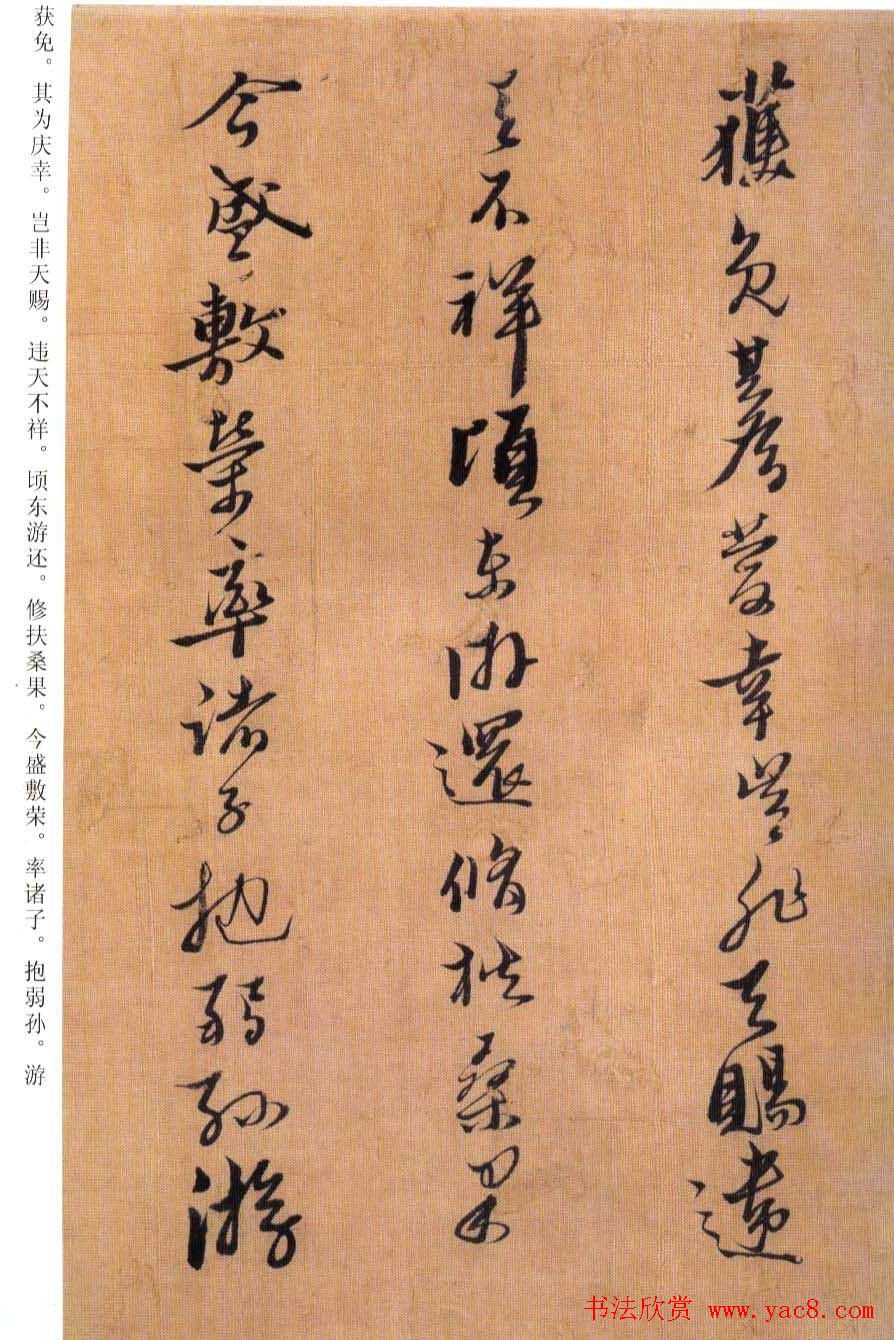 獲免其為慶幸豈非天賜違
天不祥頃東游還脩扶桑果
今盛敷榮率諸子抱弱孫游
获免。其为庆幸。岂非天赐。违天不祥。顷东游还。修扶桑果。今盛敷荣。率诸子。抱弱孙。游
书法欣赏 www.yac8.com